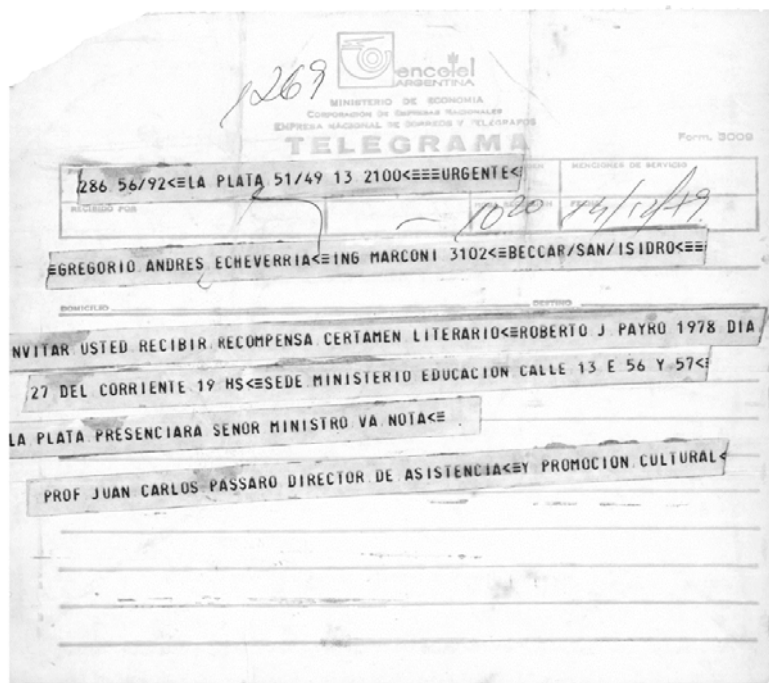 1269
encotel
ARGENTINA
MINISTERIO DE ECONOMIA
CORPORACION DE EMPRESAS NACIONALES
EMPRESA NACIONAL DE CORREOS Y TELEGRAFOS
TELEGRAMA
Form. 3009
MENCIONES DE SERVICIO
286 56/92<≡LA PLATA 51/49 13 2100<≡≡≡URGENTE<
RECIBIDO POR
FECHA
1020 14/12/79
≡GREGORIO ANDRES ECHEVERRIA<≡ING MARCONI 3102<≡BECCAR/SAN/ISIDRO<≡≡
DOMICILIO
DESTINO
NVITAR USTED RECIBIR RECOMPENSA CERTAMEN LITERARIO<≡ROBERTO J PAYRO 1978 DIA
27 DEL CORRIENTE 19 HS<≡SEDE MINISTERIO EDUCACION CALLE 13 E 56 Y 57<≡
LA PLATA PRESENCIARA SENOR MINISTRO VA NOTA<≡
PROF JUAN CARLOS PASSARO DIRECTOR DE ASISTENCIA<≡Y PROMOCION CULTURAL<